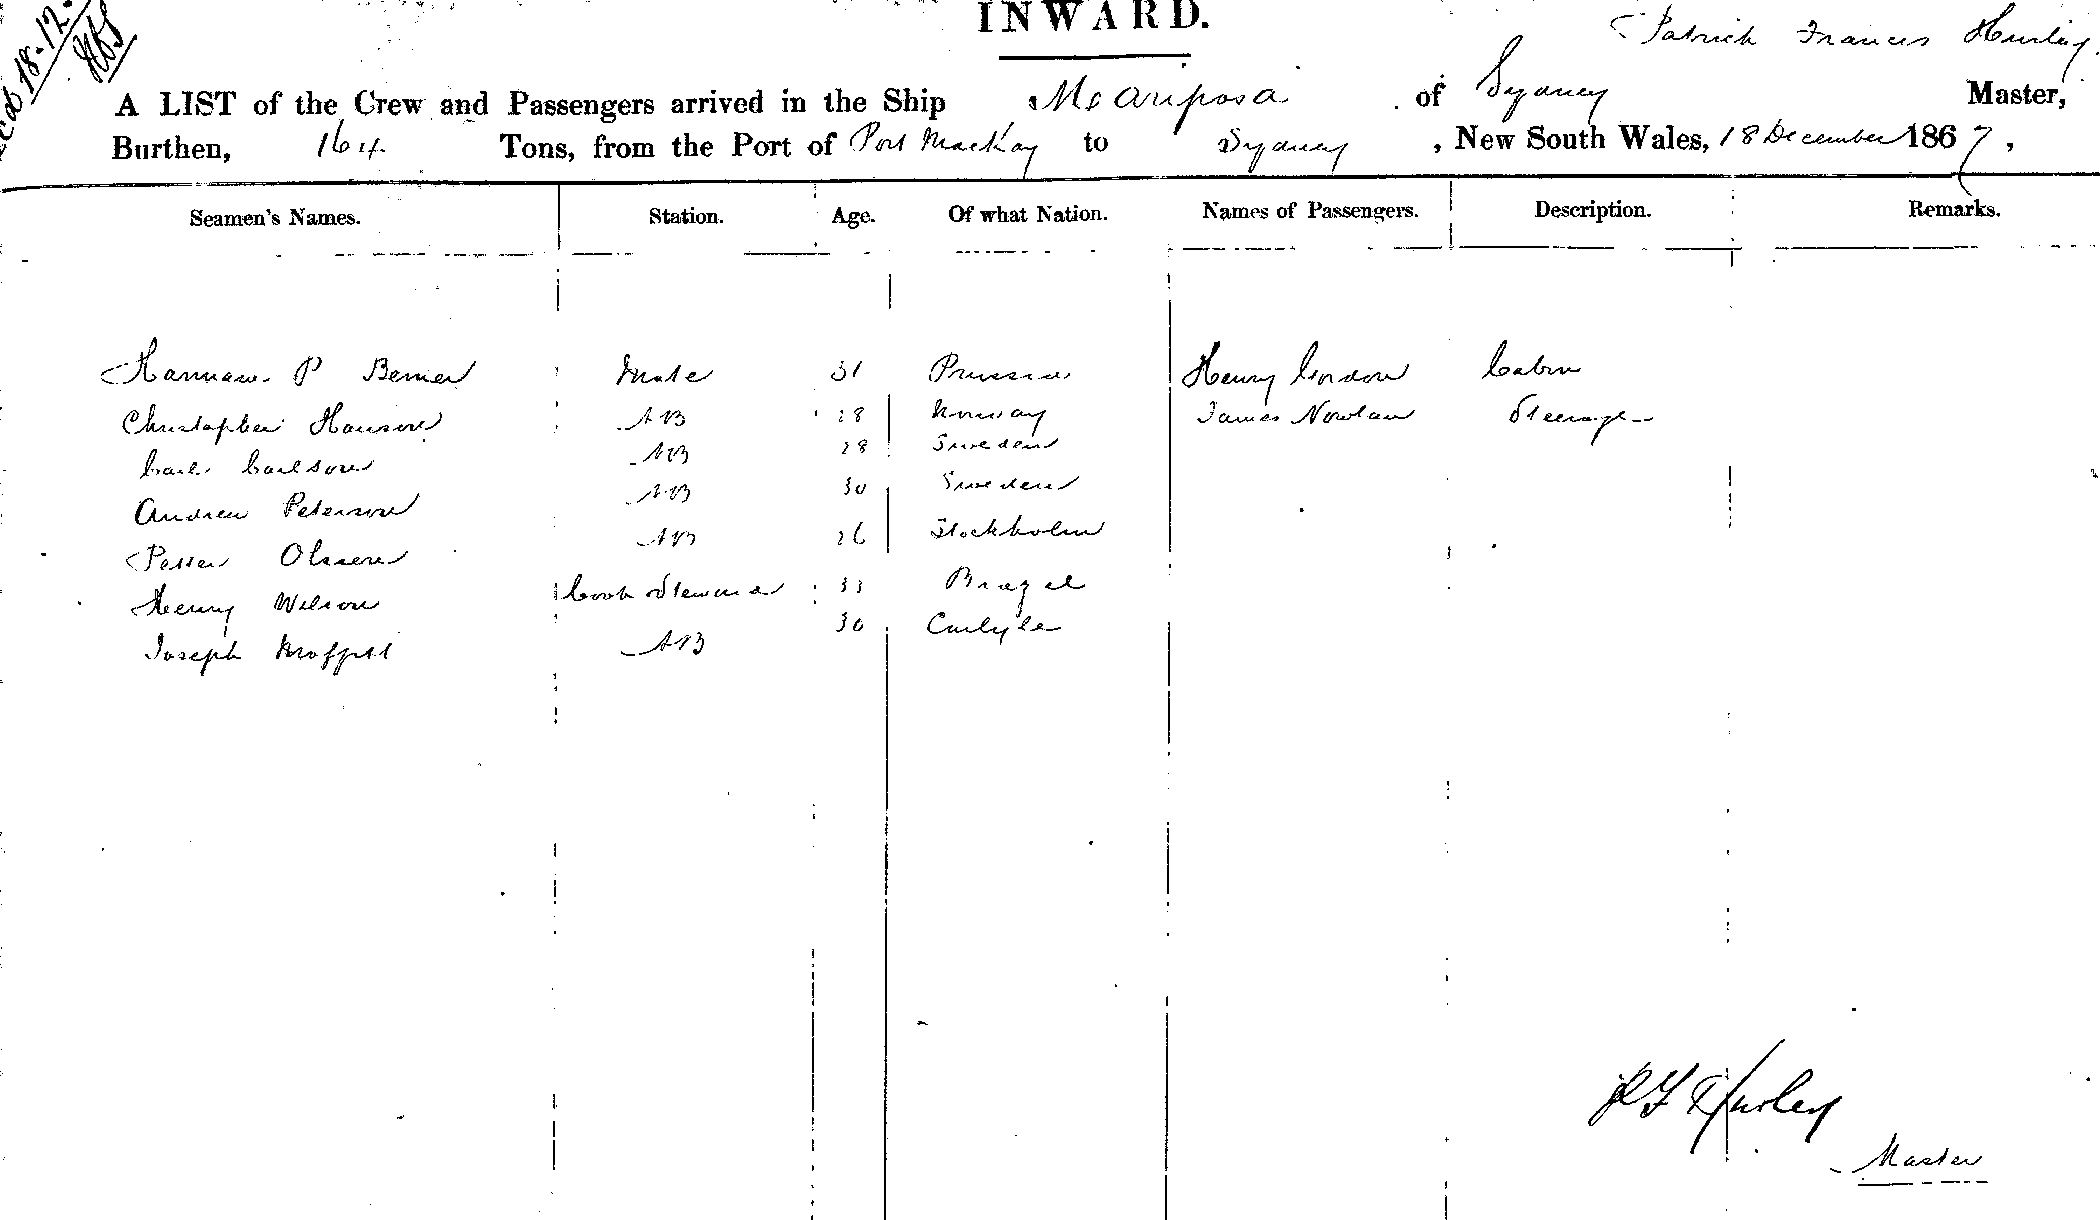 18.12.
INWARD.
Patrick Francis Hurley
A LIST of the Crew and Passengers arrived in the Ship Mcariposa of Sydney Master,
Burthen, 164 Tons, from the Port of Port Mackay to Sydney, New South Wales, 18 December 1867,
Seamen's Names. Station. Age. Of what Nation. Names of Passengers. Description. Remarks.
P Mate 31 Prussia Henry Gordon Cabin
Christopher Hanson AB 28 Norway James Nowlan Steerage
Carl Carlson AB 28 Sweden
Andrew Peterson AB 30 Sweden
Olssen AB 26 Stockholm
Henry Wilson Cook Steward 33 Brazel
Joseph Moffitt AB 30 Carlyle
P F Hurley
Master